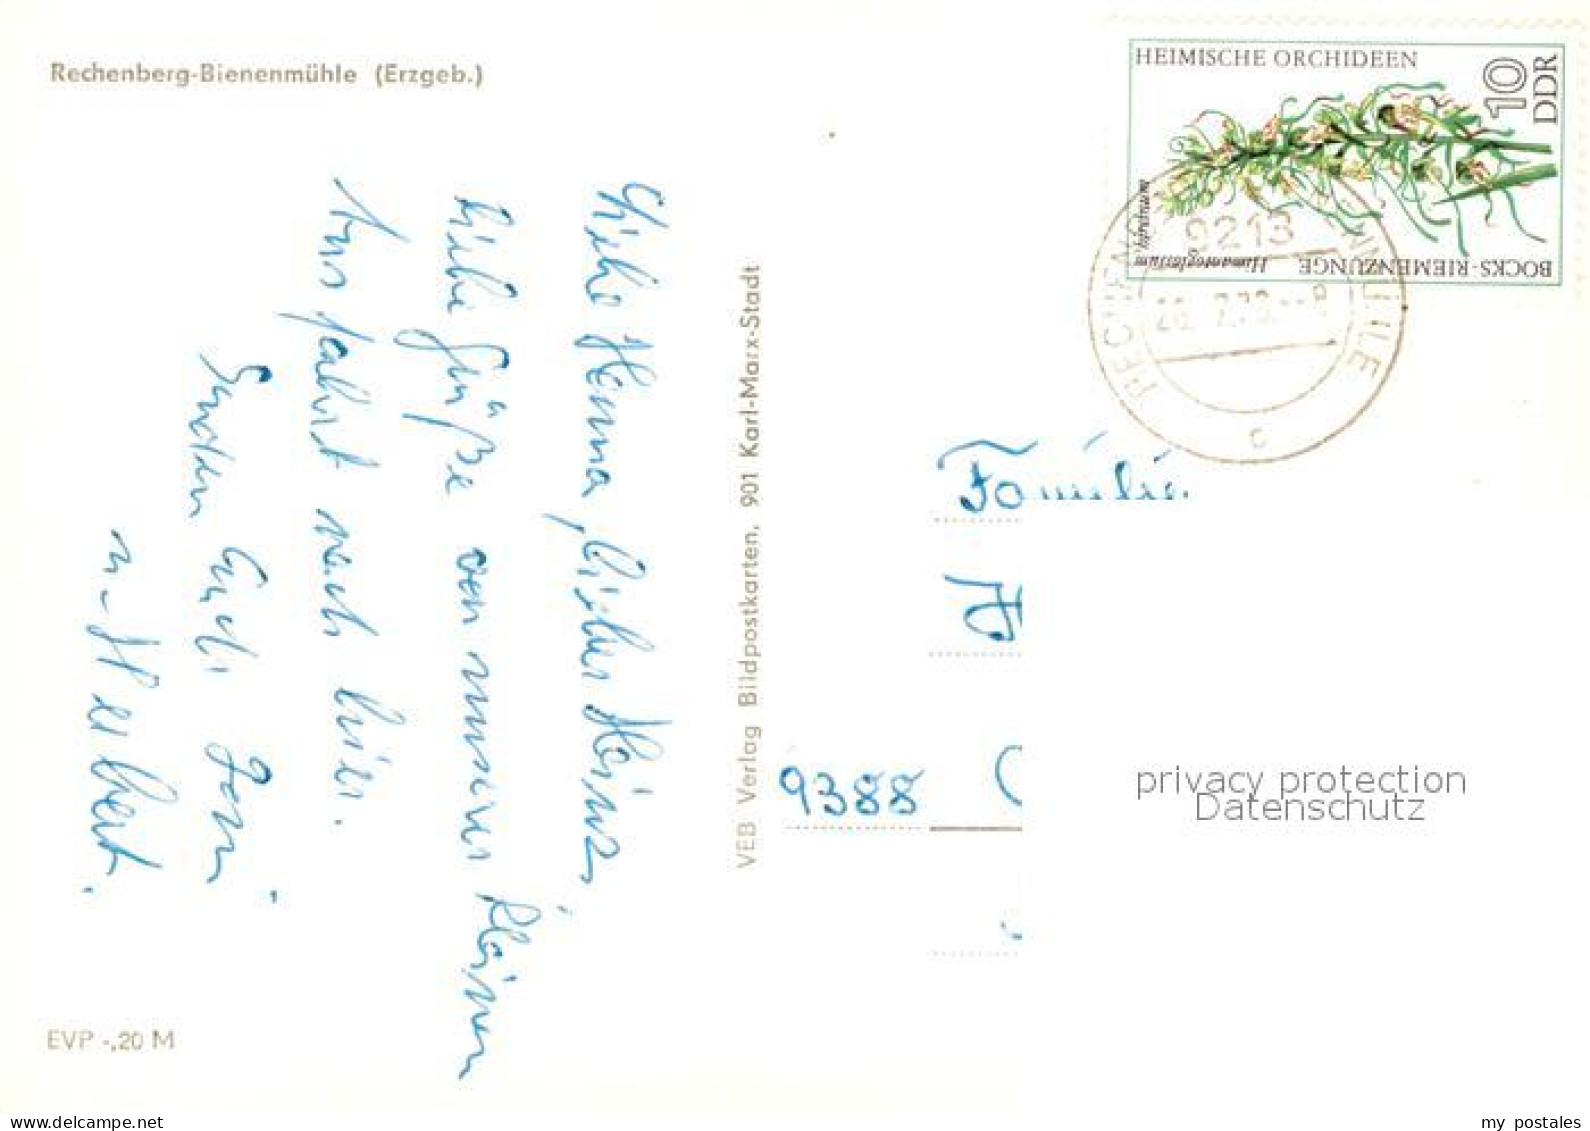 Rechenberg-Bienenmühle (Erzgeb.)
Liebe Hanna, lieber Heinz,
liebe Grüße von unserer kleinen
Ausfahrt nach hier.
Senden Euch Gerti
u. Herbert.
EVP -,20 M
VEB Verlag Bildpostkarten, 901 Karl-Marx-Stadt
HEIMISCHE ORCHIDEEN
10
DDR
BOCKS-RIEMENZUNGE
Himantoglossum hircinum
9213
c
Familie
9388
privacy protection
Datenschutz
www.delcampe.net
my_postales